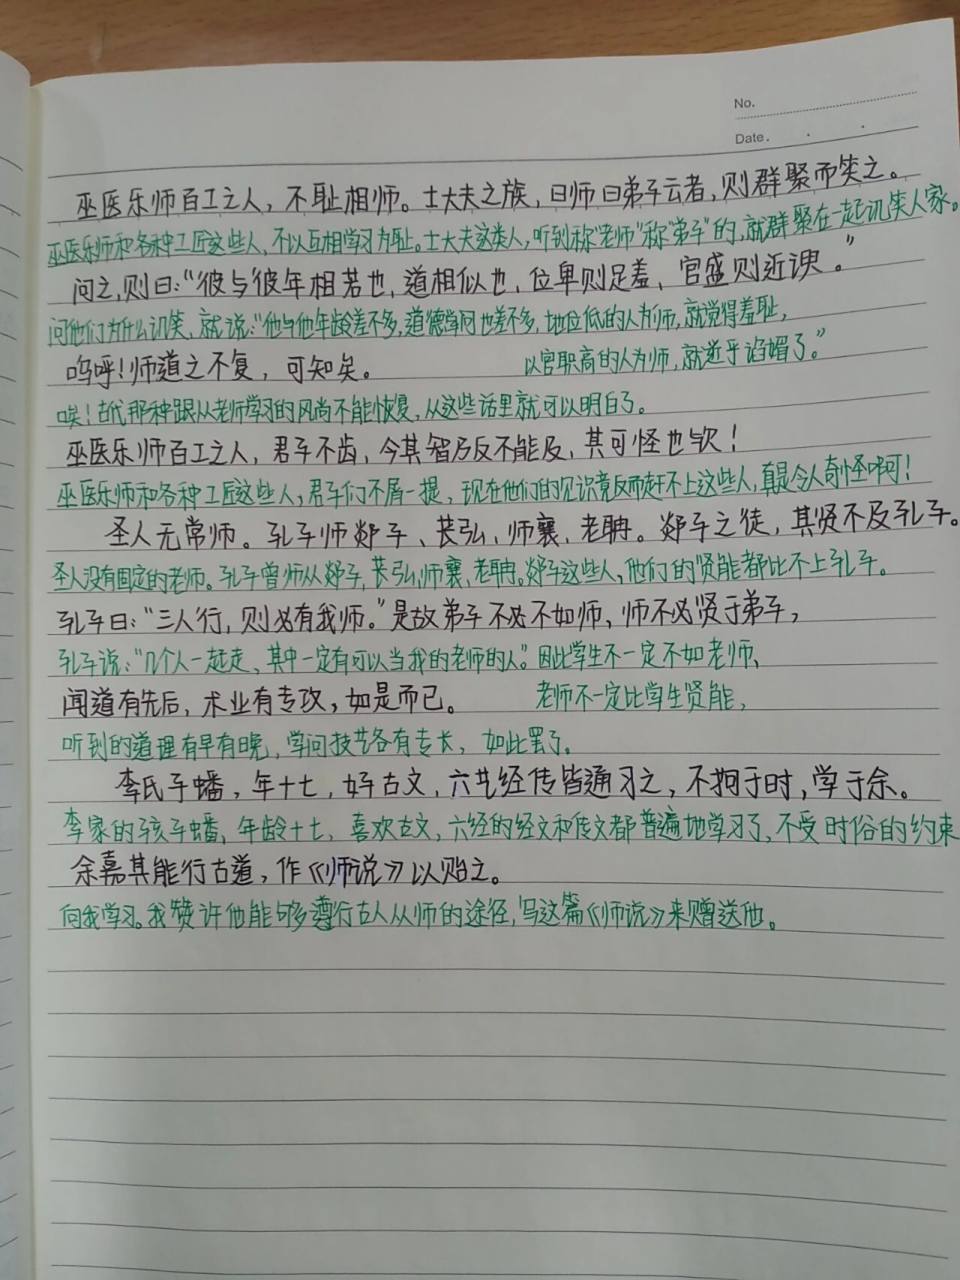 No.
Date.
巫医乐师百工之人，不耻相师。士大夫之族，曰师曰弟子云者，则群聚而笑之。
巫医乐师和各种工匠这些人，不以互相学习为耻。士大夫这类人，听到称“老师”称“弟子”的，就群聚在一起讥笑人家。
问之，则曰：“彼与彼年相若也，道相似也，位卑则足羞，官盛则近谀。”
问他们为什么讥笑，就说：“他与他年龄差不多，道德学问也差不多，地位低的人为师，就觉得羞耻，
以官职高的人为师，就近乎谄媚了。”
呜呼！师道之不复，可知矣。
唉！古代那种跟从老师学习的风尚不能恢复，从这些话里就可以明白了。
巫医乐师百工之人，君子不齿，今其智乃反不能及，其可怪也欤！
巫医乐师和各种工匠这些人，君子们不屑一提，现在他们的见识竟反而赶不上这些人，真是令人奇怪啊！
圣人无常师。孔子师郯子、苌弘、师襄、老聃。郯子之徒，其贤不及孔子。
圣人没有固定的老师。孔子曾师从郯子，苌弘，师襄、老聃。郯子这些人，他们的贤能都比不上孔子。
孔子曰：“三人行，则必有我师。”是故弟子不必不如师，师不必贤于弟子，
孔子说：“几个人一起走，其中一定有可以当我的老师的人”。因此学生不一定不如老师、
老师不一定比学生贤能，
闻道有先后，术业有专攻，如是而已。
听到的道理有早有晚，学问技艺各有专长，如此罢了。
李氏子蟠，年十七，好古文，六艺经传皆通习之，不拘于时，学于余。
李家的孩子蟠，年龄十七，喜欢古文，六经的经文和传文都普遍地学习了，不受时俗的约束
余嘉其能行古道，作《师说》以贻之。
向我学习。我赞许他能够遵行古人从师的途径，写这篇《师说》来赠送他。